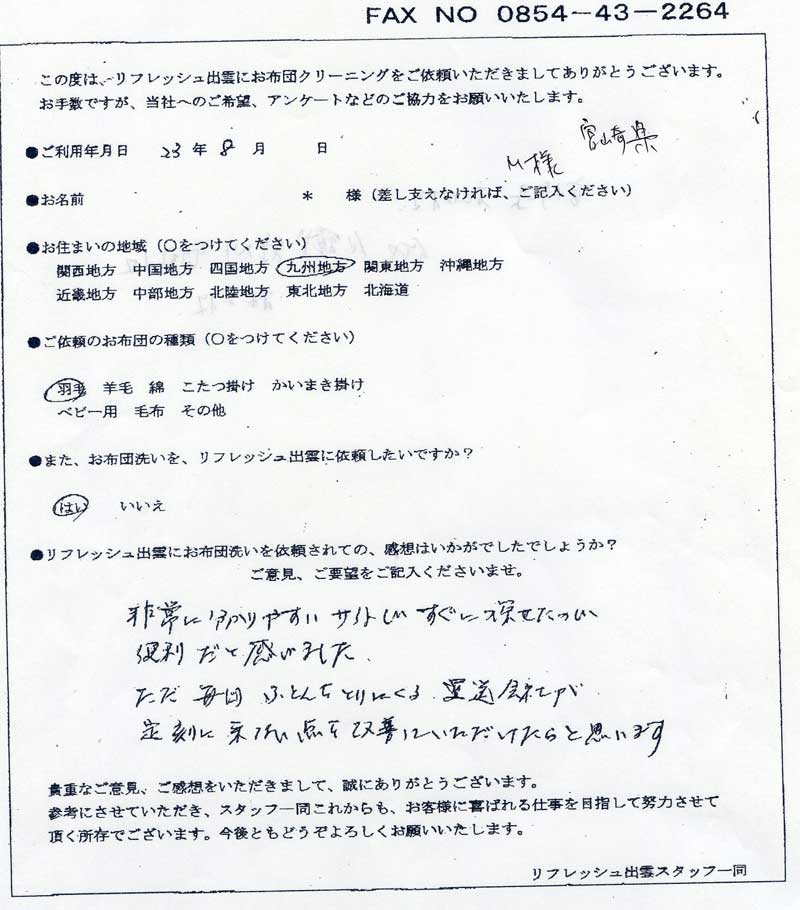 FAX NO 0854-43-2264
この度は、リフレッシュ出雲にお布団クリーニングをご依頼いただきましてありがとうございます。
お手数ですが、当社へのご希望、アンケートなどのご協力をお願いいたします。
宮崎県
●ご利用年月日 23年8月 日
M様
●お名前 * 様（差し支えなければ、ご記入ください）
●お住まいの地域（○をつけてください）
関西地方 中国地方 四国地方 九州地方 関東地方 沖縄地方
近畿地方 中部地方 北陸地方 東北地方 北海道
●ご依頼のお布団の種類（○をつけてください）
羽毛 羊毛 綿 こたつ掛け かいまき掛け
ベビー用 毛布 その他
●また、お布団洗いを、リフレッシュ出雲に依頼したいですか？
はい いいえ
●リフレッシュ出雲にお布団洗いを依頼されての、感想はいかがでしたでしょうか？
ご意見、ご要望をご記入くださいませ。
非常に分かりやすいサイトですぐに探せたので
便利だと感じました。
ただ毎回ふとんをとりにくる運送会社が
定刻に来ない点を改善していただけたらと思います
貴重なご意見、ご感想をいただきまして、誠にありがとうございます。
参考にさせていただき、スタッフ一同これからも、お客様に喜ばれる仕事を目指して努力させて
頂く所存でございます。今後ともどうぞよろしくお願いいたします。
リフレッシュ出雲スタッフ一同